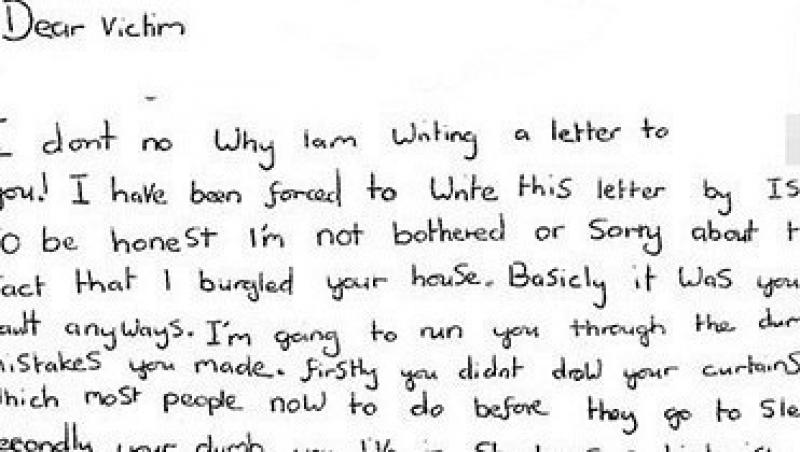 Dear Victim
I dont no Why Iam Writing a letter to
you! I have been forced to Write this letter by IS
to be honest I'm not bothered or Sorry about t
fact that I burgled your house. Basicly it Was you
ault anyways. I'm going to run you through the dum
mistakes you made. firstly you didnt drow your curtains
which most people now to do before they go to Sle
econdly your dumb you live in